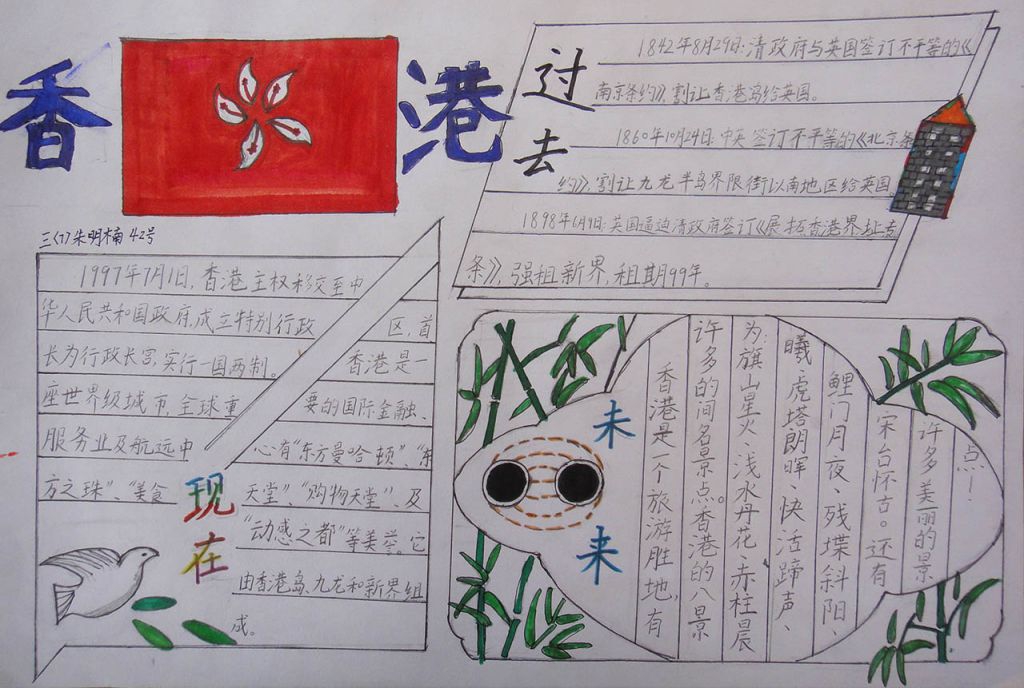 香港
三(7)朱明楠 42号
过去
1842年8月29日:清政府与英国签订不平等的《
南京条约》,割让香港岛给英国。
1860年10月24日:中英签订不平等的《北京条
约》,割让九龙半岛界限街以南地区给英国。
1898年6月9日:英国逼迫清政府签订《展拓香港界址专
条》,强租新界,租期99年。
现在
1997年7月1日,香港主权移交至中
华人民共和国政府,成立特别行政区,首
长为行政长官,实行一国两制。香港是一
座世界级城市,全球重要的国际金融、
服务业及航远中心有“东方曼哈顿”、“东
方之珠”、“美食天堂”、“购物天堂”、及
“动感之都”等美誉。它
由香港岛、九龙和新界组
成。
未来
香港是一个旅游胜地,有
许多的间名景点。香港的八景
为:旗山星火、浅水丹花、赤柱晨
曦、虎塔朗晖、快活蹄声、
鲤门月夜、残堞斜阳、
宋台怀古。还有
许多美丽的景
点!